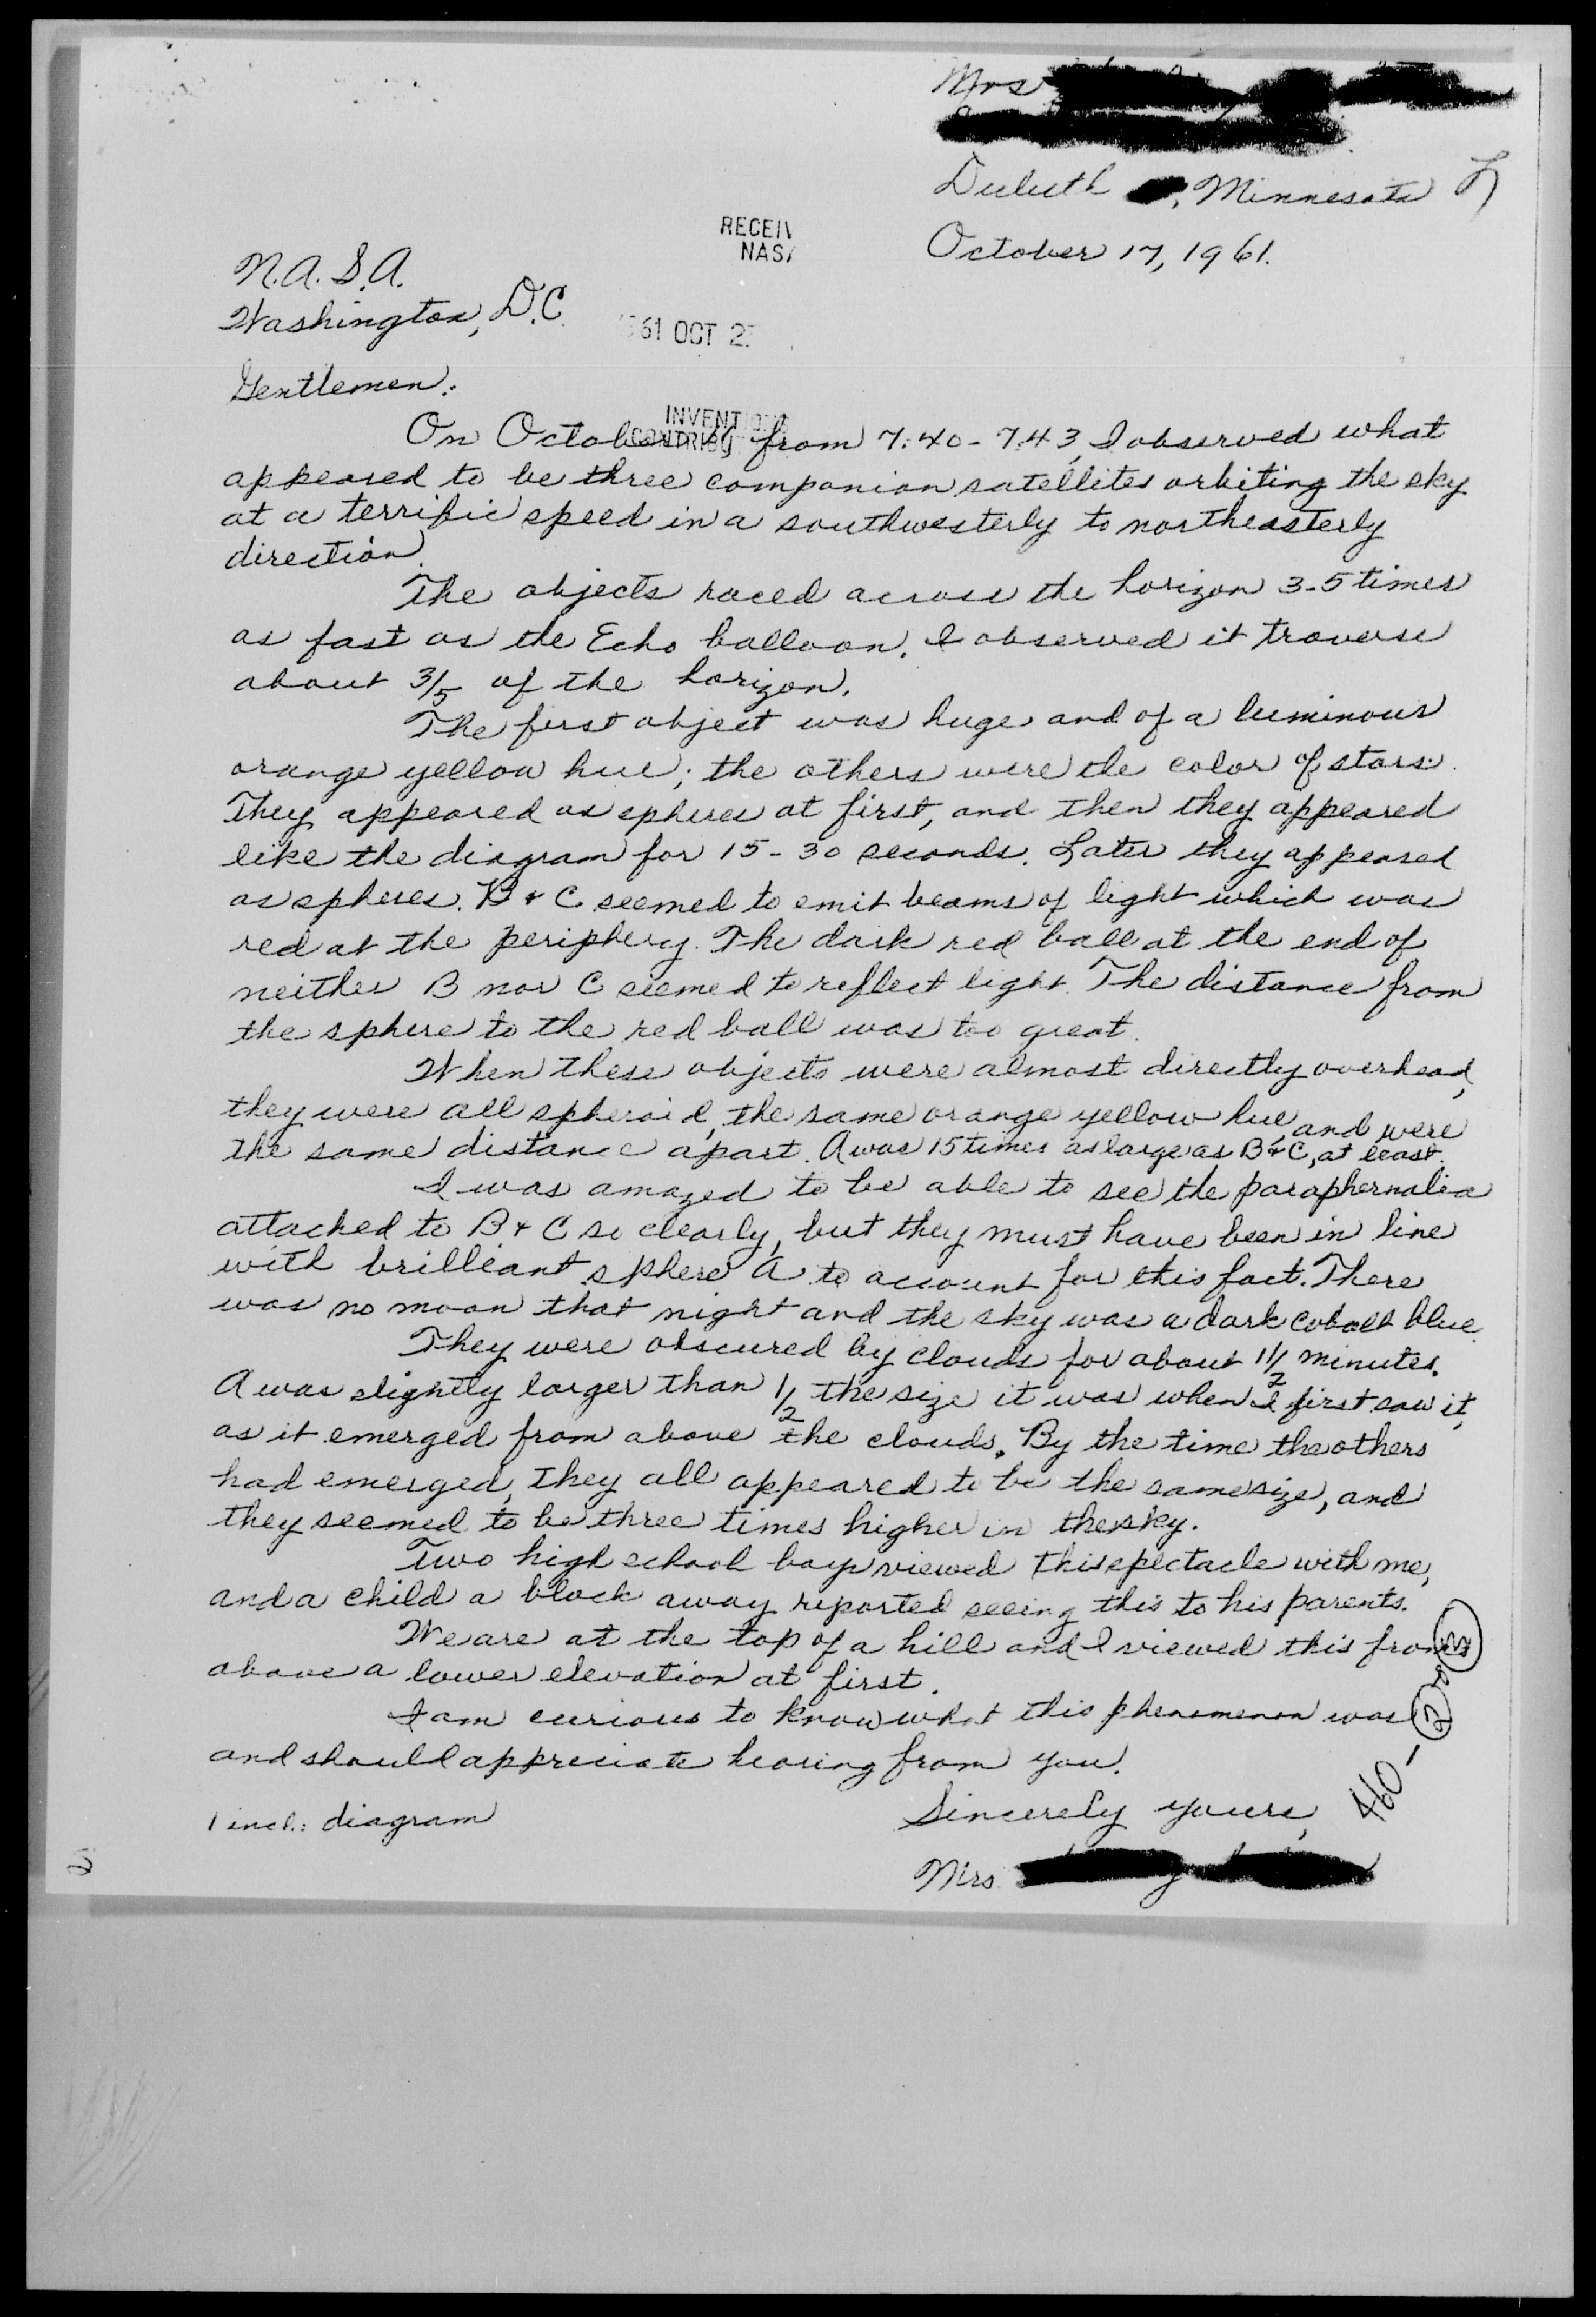 Mrs
Duluth , Minnesota
October 17, 1961.
RECEIV
NASA
N.A.S.A.
Washington, D.C.
'61 OCT 2
Gentlemen:
INVENTIONS
CONTRIBU
On October from 7:40-7:43, I observed what
appeared to be three companion satellites orbiting the sky
at a terrific speed in a southwesterly to northeasterly
direction.
The objects raced across the horizon 3-5 times
as fast as the Echo balloon. I observed it traverse
about 3/5 of the horizon.
The first object was huge and of a luminous
orange yellow hue; the others were the color of stars.
They appeared as spheres at first, and then they appeared
like the diagram for 15-30 seconds. Later they appeared
as spheres. B & C seemed to emit beams of light which was
red at the periphery. The dark red ball at the end of
neither B nor C seemed to reflect light. The distance from
the sphere to the red ball was too great.
When these objects were almost directly overhead,
they were all spheroid, the same orange yellow hue, and were
the same distance apart. A was 15 times as large as B & C, at least.
I was amazed to be able to see the paraphernalia
attached to B & C so clearly, but they must have been in line
with brilliant sphere A to account for this fact. There
was no moon that night and the sky was a dark cobalt blue.
They were obscured by clouds for about 1 1/2 minutes.
A was slightly larger than 1/2 the size it was when I first saw it,
as it emerged from above the clouds. By the time the others
had emerged, they all appeared to be the same size, and
they seemed to be three times higher in the sky.
Two high school boys viewed this spectacle with me,
and a child a block away reported seeing this to his parents.
We are at the top of a hill and I viewed this from
above a lower elevation at first.
I am curious to know what this phenomenon was
and should appreciate hearing from you.
1 incl.: diagram
Sincerely yours,
Mrs.